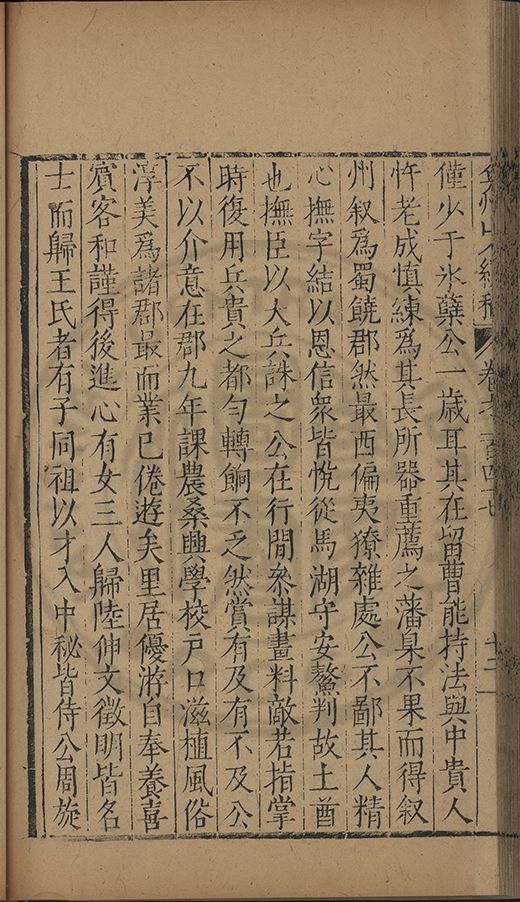 僅少于氷蘗公一歲耳其在留曹能持法與中貴人
忤老成慎練爲其長所器重薦之藩臬不果而得叙
州叙爲蜀饒郡然最西偏夷獠雜處公不鄙其人精
心撫字結以恩信衆皆悅從馬湖守安鰲判故土酋
也撫臣以大兵誅之公在行間叅謀畫料敵若指掌
時復用兵貴之都勻轉餉不乏然賞有及有不及公
不以介意在郡九年課農桑興學校戸口滋植風俗
淳美爲諸郡最而業已倦遊矣里居優游自奉養喜
賓客和謹得後進心有女三人歸陸伸文徵明皆名
士而歸王氏者有子同祖以才入中秘皆侍公周旋